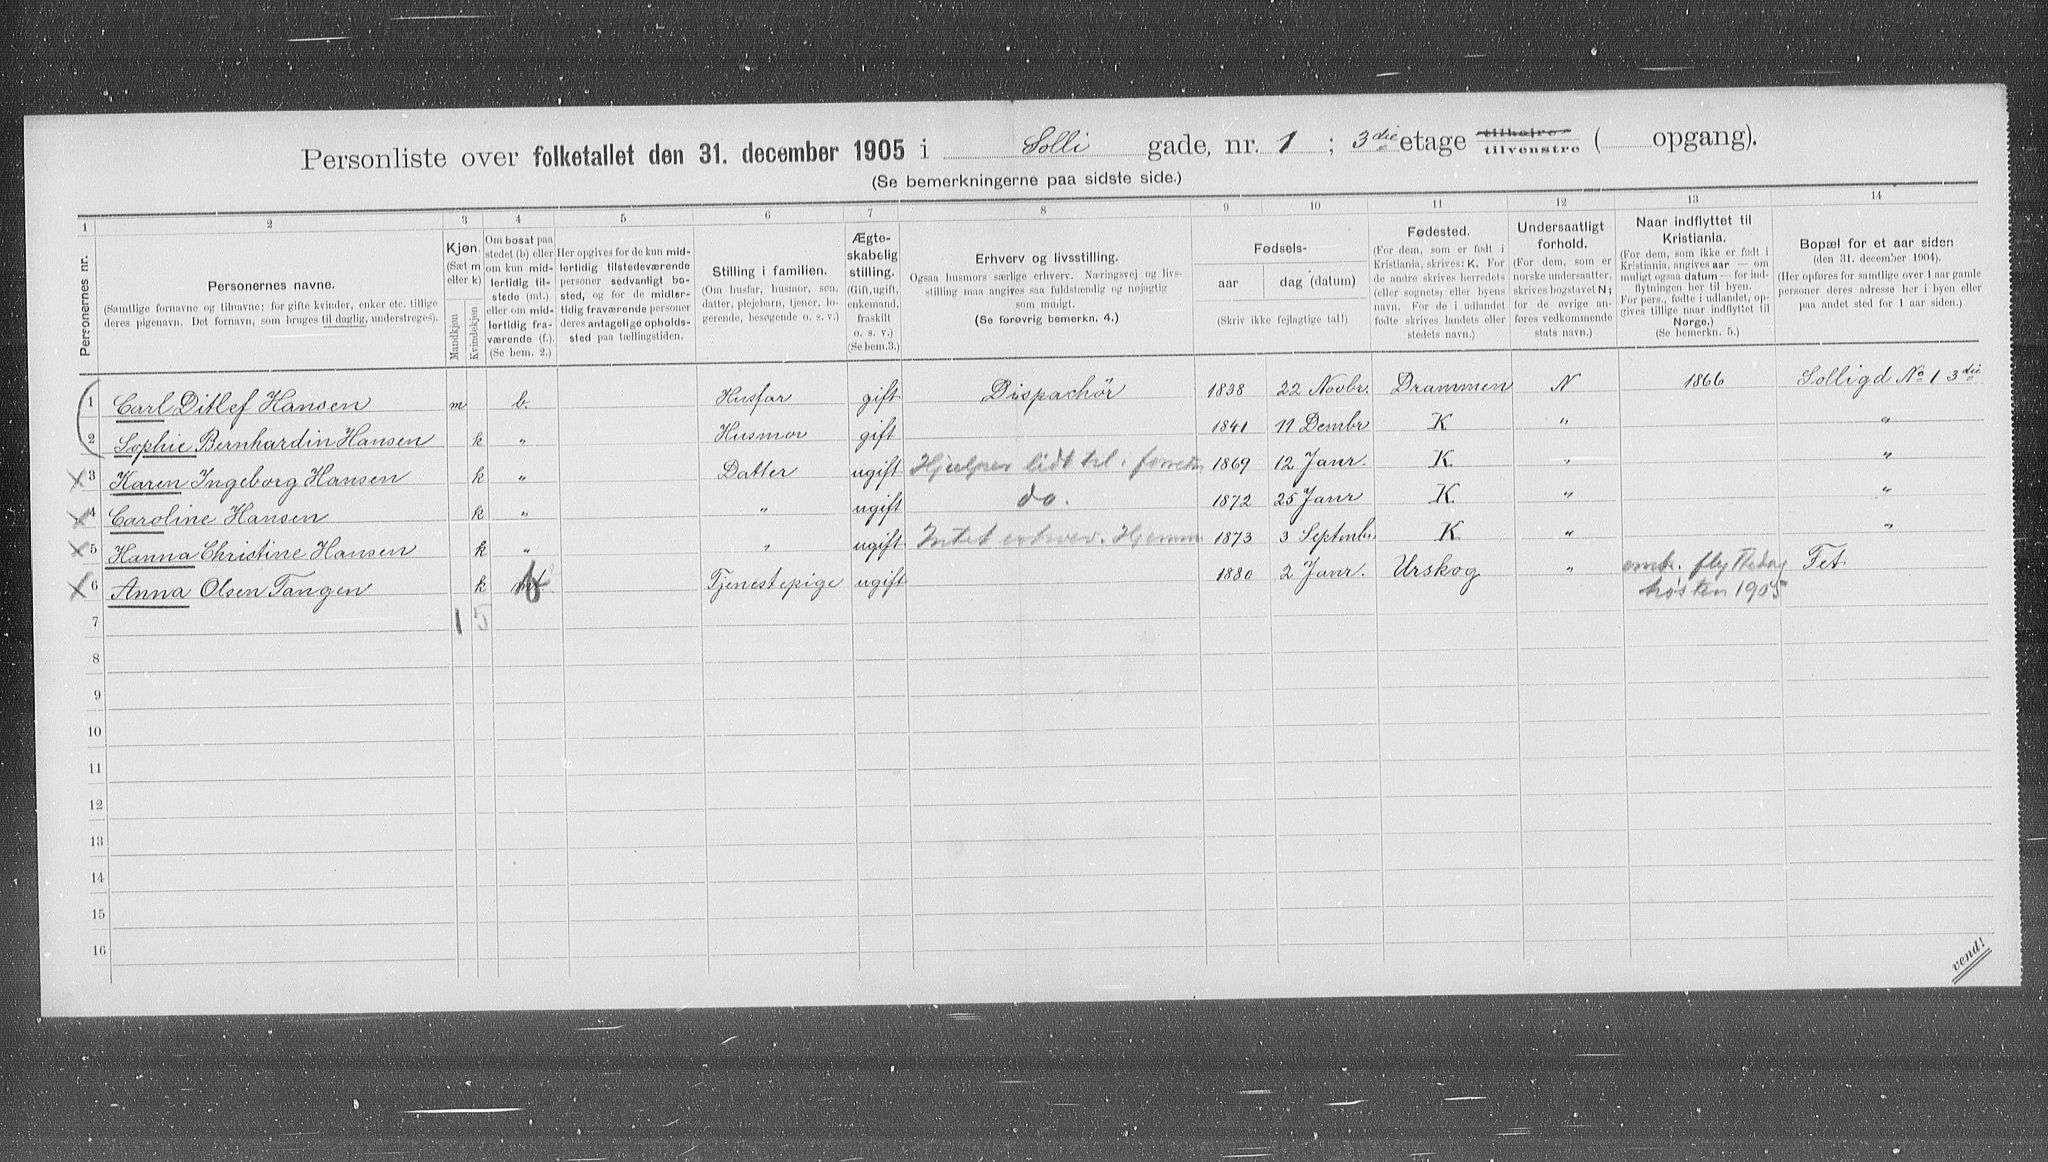 Personliste over folketallet den 31. december 1905 i Solli gade, nr. 1 ; 3die etage tilhøire tilvenstre ( opgang).
(Se bemerkningerne paa sidste side.)
1 2 3 4 5 6 7 8 9 10 11 12 13 14
Personernes nr.
Personernes navne.
(Samtlige fornavne og tilnavne; for gifte kvinder, enker etc. tillige
deres pigenavn. Det fornavn, som bruges til daglig, understreges).
Kjøn.
(Sæt m
eller k)
Mandkjøn
Kvindekjøn
Om bosat paa
stedet (b) eller
om kun mid-
lertidig til-
stede (mt.)
eller om mid-
lertidig fra-
værende (f.).
(Se bem. 2.)
Her opgives for de kun mid-
lertidig tilstedeværende
personer sedvanligt bo-
sted, og for de midler-
tidig fraværende personer
deres antagelige opholds-
sted paa tællingstiden.
Stilling i familien.
(Om husfar, husmor, søn,
datter, plejebarn, tjener, lo-
gerende, besøgende o. s. v.)
Ægte-
skabelig
stilling.
(Gift, ugift,
enkemand,
fraskilt
o. s. v.)
(Se bem.3.)
Erhverv og livsstilling.
Ogsaa husmors særlige erhverv. Næringsvej og livs-
stilling maa angives saa fuldstændig og nøjagtig
som muligt.
(Se forøvrig bemerkn. 4.)
Fødsels-
aar dag (datum)
(Skriv ikke fejlagtige tal!)
Fødested.
(For dem, som er født i
Kristiania, skrives: K. For
de andre skrives herredets
(eller sognets) eller byens
navn. For de i udlandet
fødte skrives landets eller
stedets navn.)
Undersaatligt
forhold.
(For dem, som er
norske undersaatter,
skrives bogstavet N;
for de øvrige an-
føres vedkommende
stats navn.)
Naar indflyttet til
Kristiania.
(For dem, som ikke er født i
Kristiania, angives aar — om
muligt ogsaa datum — for ind-
flytningen her til byen.
For pers., fødte i udlandet, op-
gives tillige naar indflyttet til
Norge.)
(Se bemerkn. 5.)
Bopæl for et aar siden
(den 31. december 1904).
(Her opføres for samtlige over 1 aar gamle
personer deres adresse her i byen eller
paa andet sted for 1 aar siden.)
1 Carl Ditlef Hansen m b. Husfar gift Dispachör 1838 22 Novbr. Drammen N 1866 Solligd No 1 3die
2 Sophie Bernhardin Hansen k " Husmor gift 1841 11 Dembr K " "
3 Karen Ingeborg Hansen k " Datter ugift Hjælper lidt til i 1869 12 Janr. K " "
4 Caroline Hansen k " " ugift do. 1872 25 Janr K " "
5 Hanna Christine Hansen k " " ugift Intet erhverv. Hjemme 1873 3 Septmbr K " "
6 Anna Olsen Tangen k b Tjenestepige ugift 1880 2 Janr. Urskog " Fet
høsten 1905
7 1 5
8
9
10
11
12
13
14
15
16
vend!